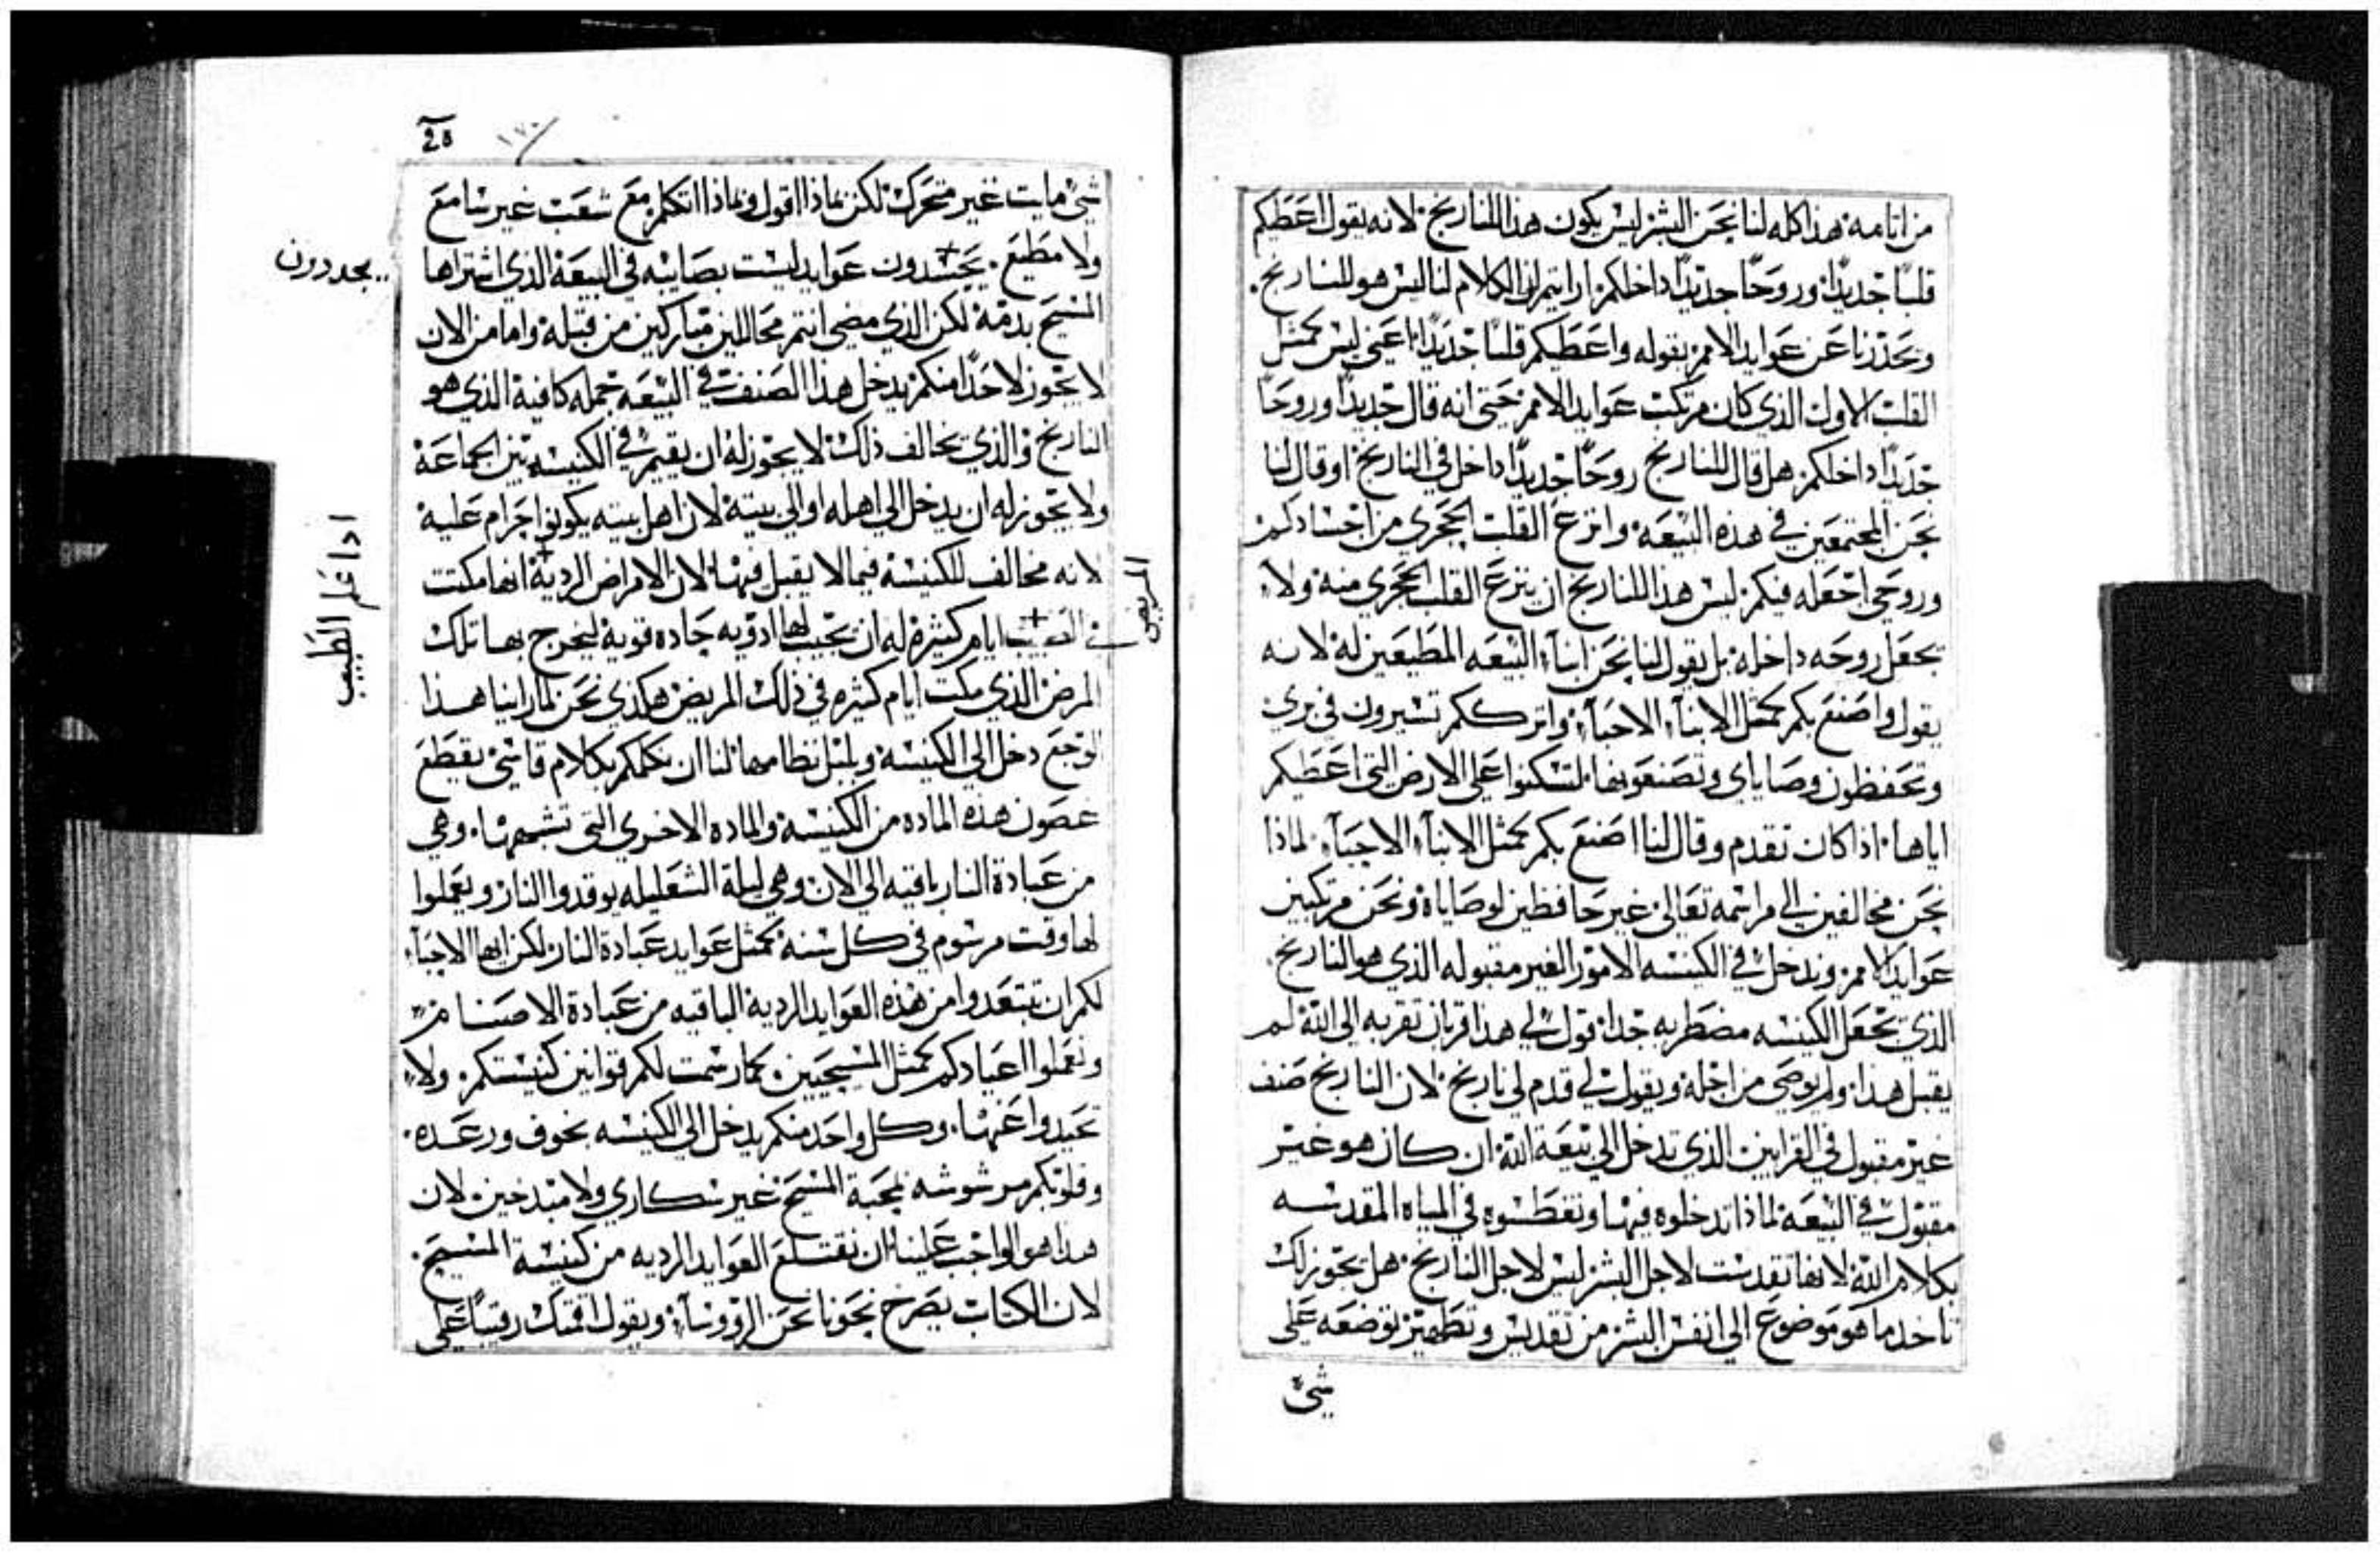 من اثامه هذا كله لنا نحن البشر ليس يكون هذا للنارنج لانه يقول اعطيكم
قلبًا جديدًا وروحًا جديدًا داخلكم ارايتم ان الكلام لنا ليس هو للنارنج.
وتحذرنا عن عوايد الامم بقوله واعطيكم قلبًا جديدًا اعني ليس كمثل
القلب الاول الذي كان مرتكب عوايد الامم حتى انه قال جديدًا وروحًا
جديدًا داخلكم هل قال للنارنج روحًا جديدًا داخل في النارنج او قال لنا
نحن المجتمعين في هذه البيعه وانزع القلب الحجري من اجسادكم
وروحي اجعله فيكم ليس هذا للنارنج ان ينزع القلب الحجري منه ولا
يجعل روحه داخله بل يقول لنا نحن ابناء البيعه المطيعين له لانه
يقول واصنع بكم كمثل الابناء الاحباء واترككم تسيرون في بري
وتحفظون وصاياي وتصنعونها لتسكنوا على الارض التي اعطيكم
اياها اذا كان تقدم وقال لنا اصنع بكم كمثل الابناء الاحباء لماذا
نحن مخالفين الي مراسمه تعالى غير حافظين لوصاياه ونحن مرتكبين
عوايد الامم وندخل في الكنيسه الامور الغير مقبوله الذي هو النارنج.
الذي يجعل الكنيسه مضطربه جدا قول لي هذا قربان تقربه الى الله لم
يقبل هذا ولم يوصي من اجله ويقول لي قدم لي نارنج لان النارنج صنف
غير مقبول في القرابين الذي تدخل الي بيعة الله ان كان هو غير
مقبول في البيعه لماذا تدخلوه فيها وتغطسوه في المياه المقدسه
بكلام الله لانها تقدست لاجل البشر ليس لاجل النارنج هل يجوز لك
تاخد ما هو موضوع الي انفس البشر من تقديس وتطهير توضعه على
شيء
20 ١٧٠
شيء مايت غير متحرك لكن بماذا اقول وبماذا اتكلم مع شعب غير سامع
ولا مطيع. يجسدون عوايد ليست بصايبه في البيعة الذي اشتراها
يجددون
المسيح بدمه لكن الذي مضى انتم محاللين مباركين من قبله واما من الان
لا يجوز لاحدًا منكم يدخل هذا الصنف في البيعه جمله كافية الذي هو
النارنج والذي يخالف ذلك لا يجوز له ان يقيم في الكنيسه بين الجماعة
ولا يجوز له ان يدخل الي اهله او الي بيته لان اهل بيته يكونوا حرام عليه
لانه مخالف للكنيسة فيما لا يقبل فيها لان الامراض الردية انها مكتت
المريض
في ايام كثيره له ان يجيب لها ادويه حاده قوية ليخرج بها تلك
اذا علم الطبيب
المرض الذي مكت ايام كثيره في ذلك المريض هكذي نحن لما راينا هذا
الوجع دخل الي الكنيسة ويلبل نظامها لنا ان نكلمكم بكلام قاسي يقطع
غصون هذه الماده من الكنيسة والماده الاخري التي وهي
من عبادة النار باقيه الي الان وهي ليلة الشعليله يوقدوا النار ويعملوا
لها وقت مرسوم في كل سنه كمثل عوايد عبادة النار لكن ايها الاحباء
لكم ان تبتعدوا من هذه العوايد الردية الباقيه من عبادة الاصنام
وتعملوا اعيادكم كمثل المسيحيين. كما رسمت لكم قوانين كنيستكم. ولا
تحيدوا عنها. وكل واحد منكم يدخل الي الكنيسه بخوف ورعده.
وقلوبكم مرشوشه بمحبة المسيح غير سكاري ولا مبدخين لان
هذا هو الواجب علينا ان نقتلع العوايد الرديه من كنيسة المسيح.
لان الكتاب يصرخ نحونا نحن الرووساء ويقول اقمتك رقيبًا على